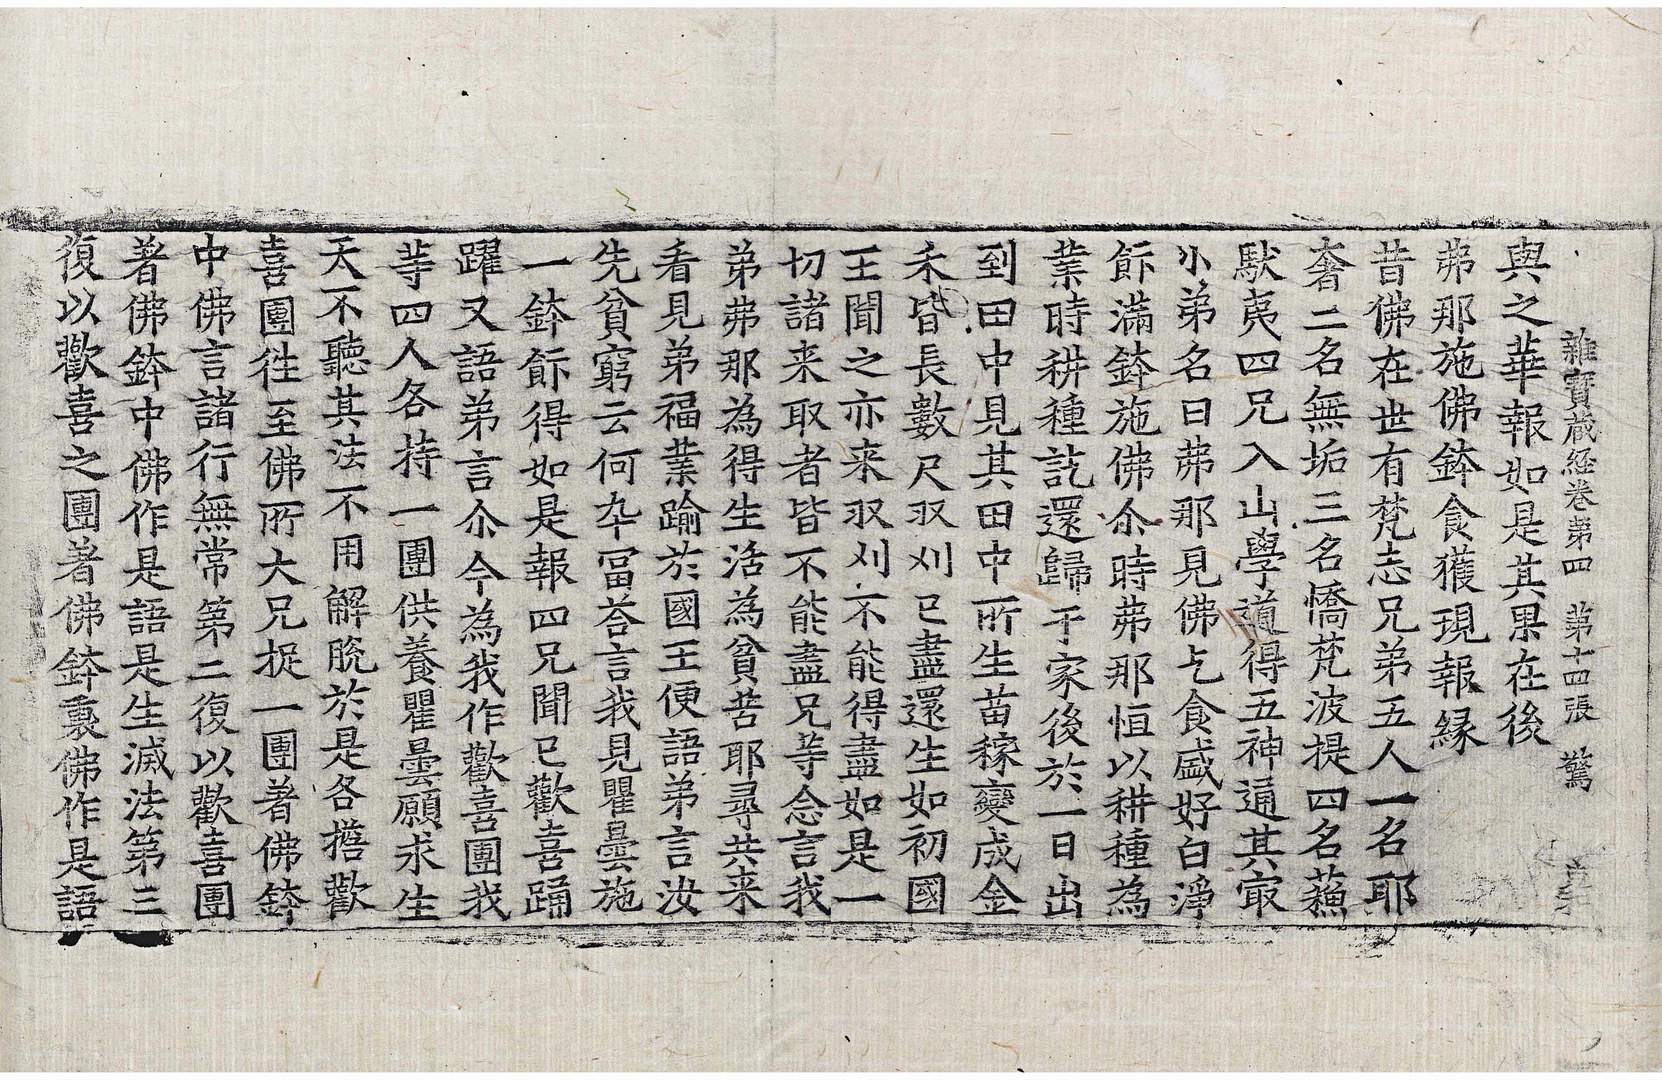 雜寶藏經卷第四　第十四張　驚
與之華報如是其果在後
弗那施佛鉢食獲現報緣
昔佛在世有梵志兄弟五人一名耶
奢二名無垢三名憍梵波提四名蘓
馱夷四兄入山學道得五神通其㝡
小弟名曰弗那見佛乞食盛好白淨
飰滿鉢施佛尒時弗那恒以耕種為
業時耕種訖還歸于家後於一日出
到田中見其田中所生苗稼變成金
禾皆長數尺収刈已盡還生如初國
王聞之亦来収刈不能得盡如是一
切諸来取者皆不能盡兄等念言我
弟弗那為得生活為貧苦耶尋共来
看見弟福業踰於國王便語弟言汝
先貧窮云何卒冨荅言我見瞿曇施
一鉢飰得如是報四兄聞已歡喜踊
躍又語弟言尒今為我作歡喜團我
等四人各持一團供養瞿曇願求生
天不聽其法不用解脫於是各擔歡
喜團往至佛所大兄捉一團著佛鉢
中佛言諸行無常第二復以歡喜團
著佛鉢中佛作是語是生滅法第三
復以歡喜之團著佛鉢裏佛作是語